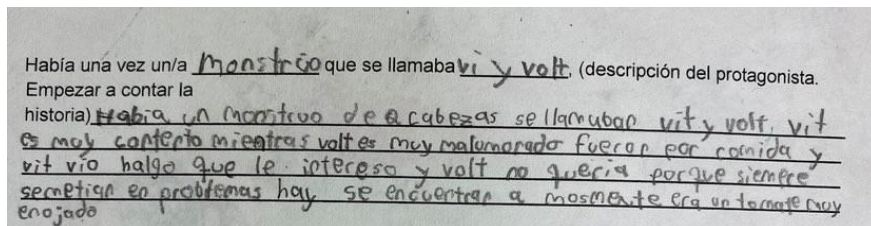 Había una vez un/a monstrúo que se llamaba vi y volt, (descripción del protagonista.
Empezar a contar la
historia) Había un monstruo de 2 cabezas se llamaban vit y volt, vit
es moy contento mientras volt es muy malumorado fueron por comida y
vit vio halgo que le intereso y volt no queria porque siempre
semetian en problemas hay se encuentran a mosmente era un tomate moy
enojado